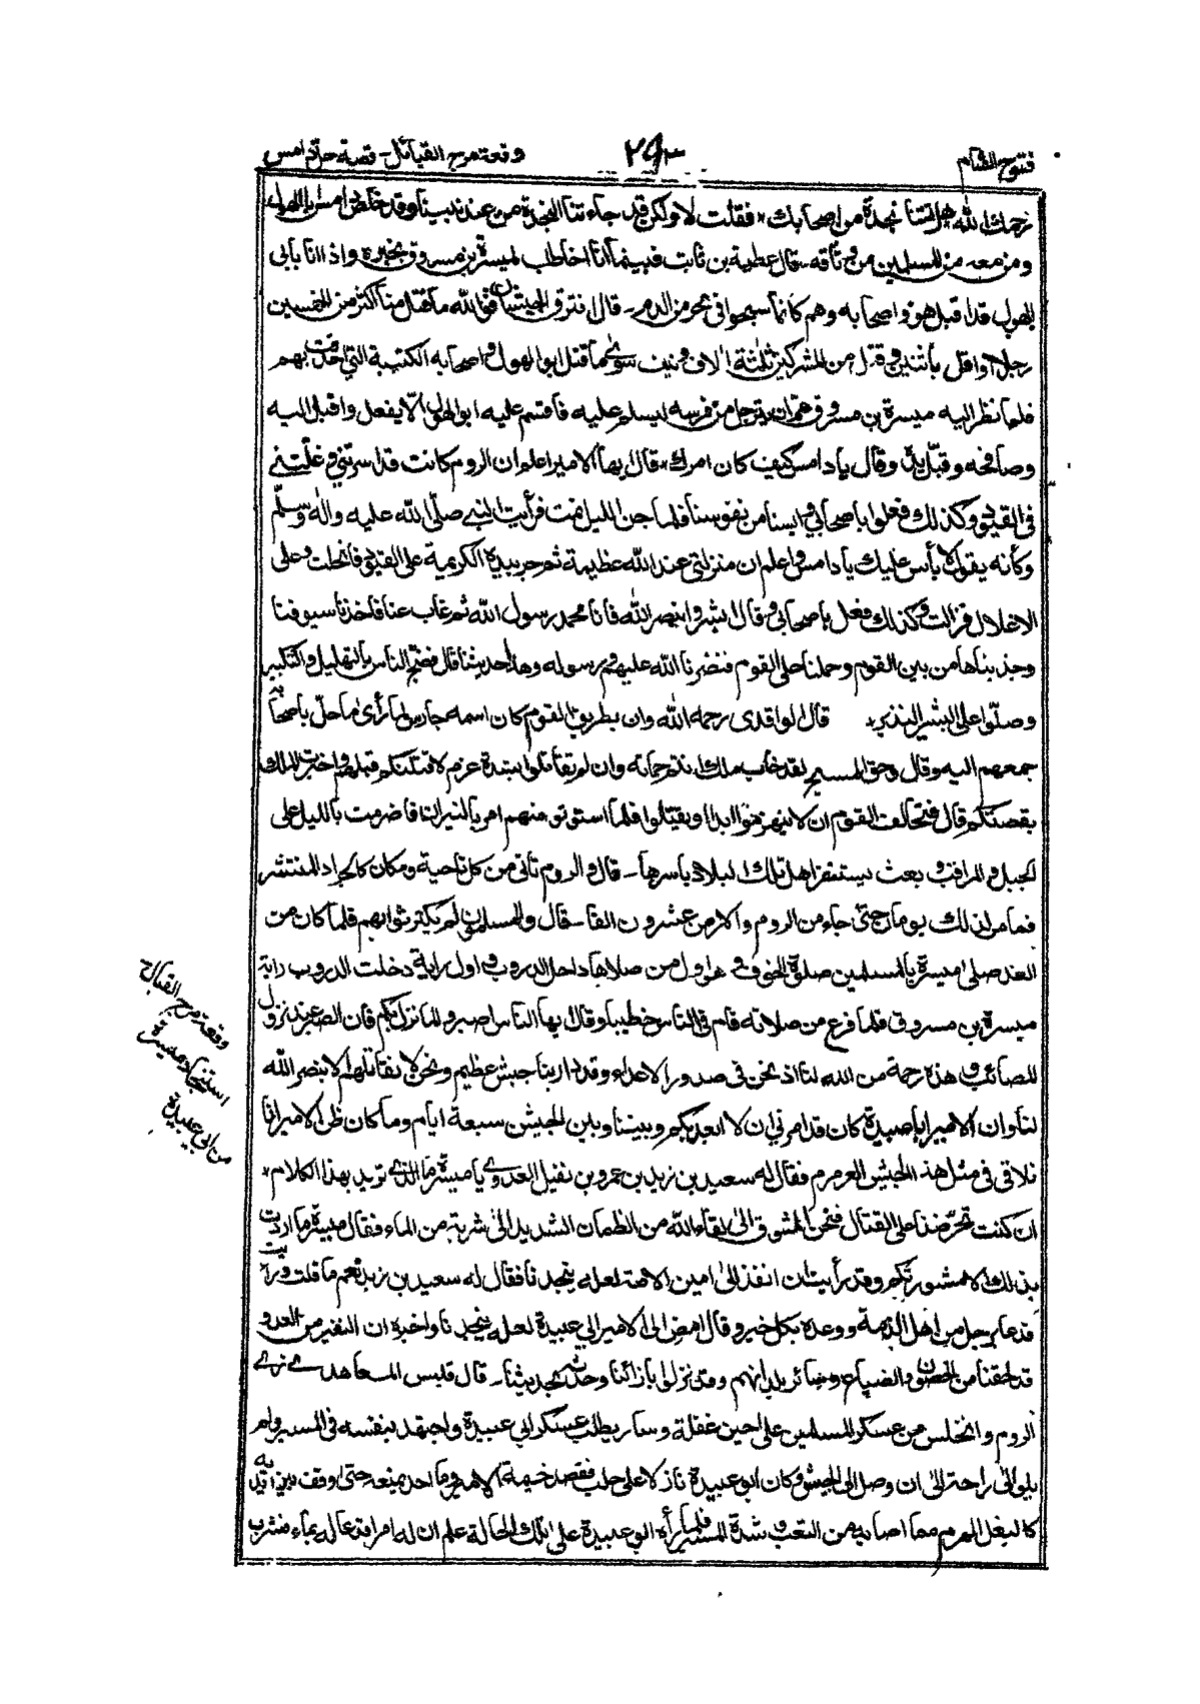 فتوح الشام
٢٩٣
وقعة مرج القبائل - قصة خلاص دامس
رحمك الله هل اتتنا نجدة من اصحابك فقلت لا ولكن قد جاءتنا النجدة من عند نبينا وقد خلص دامس ابا الهول
ومن معه من المسلمين من وثاقه قال عطية بن ثابت فبينما انا اخاطب لميسرة بن مسروق بخبره واذا انا بابي
الهول قد اقبل هو واصحابه وهم كانما سبحوا فى بحر من الدم - قال افترق الجيشان فوالله ما قتل منا اكثر من الخمسين
رجلا او اقل باثنين وقتل من المشركين ثلثة الاف ونيف سوى ما قتل ابو الهول واصحابه الكتيبة التي احدقت بهم
فلما نظر اليه ميسرة بن مسروق هم ان يترجل من فرسه ليسلم عليه فاقسم عليه ابو الهول الا يفعل واقبل اليه
وصافحه وقبل يديه وقال يا دامس كيف كان امرك قال ايها الامير اعلم ان الروم كانت قد اسرتني وغلتني
فى القيود وكذلك فعلوا باصحابي وايسنا من نفوسنا فلما جن الليل نمت فرأيت النبي صلى الله عليه واله وسلم
وكأنه يقول لا بأس عليك يا دامس واعلم ان منزلتي عند الله عظيمة ثم جر بيده الكريمة على القيود فانحلت وعلى
الاغلال فزالت وكذلك فعل باصحابي وقال ابشروا بنصر الله فانا محمد رسول الله ثم غاب عنا فاخذنا سيوفنا
وجذبناها من بين القوم وحملنا على القوم فنصرنا الله عليهم ورسوله وهذا حديثنا قال فضج الناس بالتهليل والتكبير
وصلوا على البشير النذير قال الواقدى رحمه الله وان بطريق القوم كان اسمه جارس لما رأى ما حل باصحابه
جمعهم اليه وقال وحق المسيح لقد خاب ملك انتم حماته وان لم تقاتلوا بشدة عزم لاقتلنكم قبلهم واخبرت الملك
بقصتكم قال فتحالف القوم ان لا ينهزموا ابدا او يقتلوا فلما استوثق منهم امر بالنيران فاضرمت بالليل على
الجبل والمراقب وبعث يستنفر اهل تلك البلاد باسرها - قال والروم تاتى من كل ناحية ومكان كالجراد المنتشر
فما مر لذلك يومان حتى جاء من الروم والارمن عشرون الفا - قال والمسلمون لم يكترثوا بهم فلما كان من
الغد صلى ميسرة بالمسلمين صلوة الخوف وهو اول من صلاها داخل الدروب واول راية دخلت الدروب راية
ميسرة بن مسروق فلما فرغ من صلاته قام فى الناس خطيبا وقال ايها الناس اصبروا لما نزل بكم فان الصبر عند نزول
المصائب وهذه رحمة من الله لنا اذ نحن فى صدور الاعداء وقد دار بنا جيش عظيم ونحن لا نقاتلهم الا بنصر الله
لنا وان الامير ابا عبيدة كان قد امرني ان لا ابعد بكم وبيننا وبين الجيش سبعة ايام وما كان ظن الامير انا
نلاقى فى مثل هذا الجيش العرمرم فقال له سعيد بن زيد بن عمرو بن نفيل العدوى يا ميسرة ما الذى تريد بهذا الكلام
ان كنت تحرضنا على القتال فنحن اشوق الى لقاء الله من الظمان الشديد الى شربة من الماء فقال ميسرة ما اردت
بذلك الا لمشورتكم وقد رأيت ان انفذ الى امين الامة لعله ينجدنا فقال له سعيد بن زيد نعم ما قلت ورأيت
فدعا برجل من اهل الذمة ووعده بكل خير وقال امض الى الامير ابي عبيدة لعله ينجدنا واخبره ان النفير من العدو
قد لحقنا من الحصون والضياع وسائر بلدانهم وقد نزلوا بازائنا وحدثه بحديثنا - قال فلبس المعاهدى زى
الروم وانخلس من عسكر المسلمين على حين غفلة وسار يطلب عسكر ابي عبيدة واجتهد بنفسه فى المسير ولم
يلو الى راحة الى ان وصل الى الجيش وكان ابو عبيدة نازلا على حلب فقصد خيمة الامير وما احد يمنعه حتى اوقف بين يديه
كالبغل الهرم مما اصابه من التعب وشدة المسير فلما رأه ابو عبيدة على تلك الحالة علم ان له امرا فدعا له بماء فشرب
وقعة مرج القبائل
استنجاد ميسرة
من ابي عبيدة